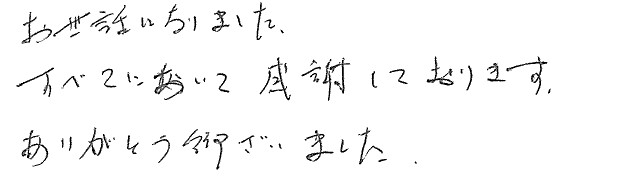 お世話になりました。
すべてにおいて感謝しております。
ありがとう御ざいました.